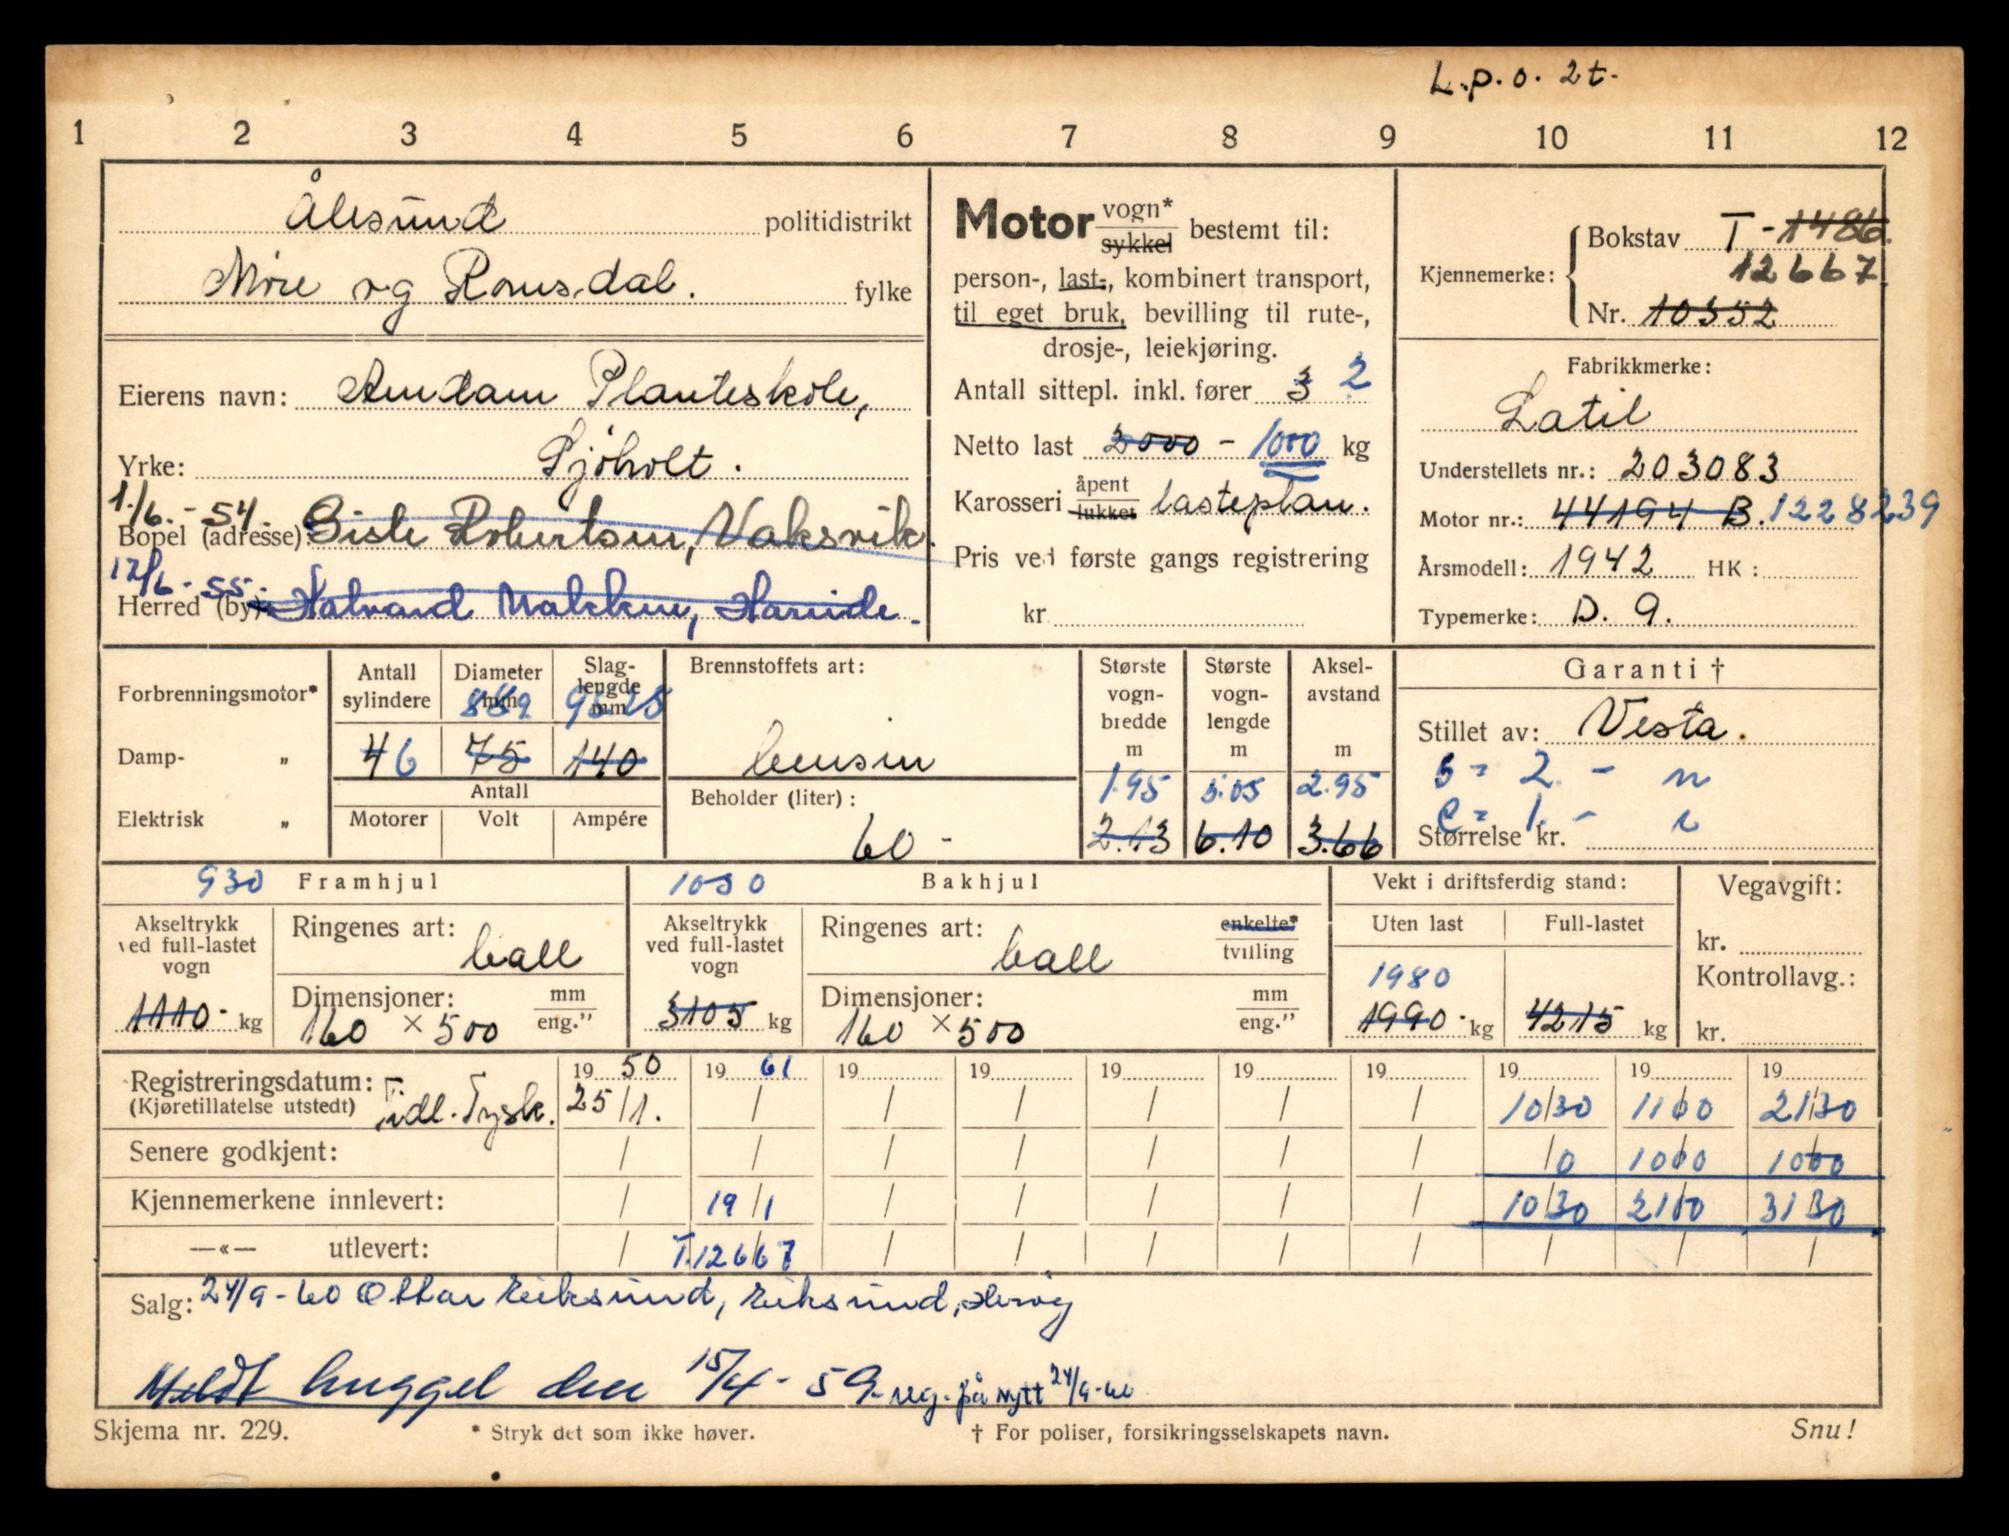 L.p.o. 2t.
1 2 3 4 5 6 7 8 9 10 11 12
Ålesund politidistrikt
Møre og Romsdal. fylke
Eierens navn: Amdam Planteskole,
Yrke: Sjøholt.
1./6.-54.
Bopel (adresse): Gisle Robertsen, Vaksvik.
12/6-55.
Herred (by): Halvard Makken, Hareide.
Motor vogn* / sykkel bestemt til:
person-, last-, kombinert transport,
til eget bruk, bevilling til rute-,
drosje-, leiekjøring.
Antall sittepl. inkl. fører 3 2
Netto last 2000 - 1000 kg
Karosseri åpent / lukket lasteplan.
Pris ved første gangs registrering
kr.
Kjennemerke: Bokstav T-1486.
12667
Nr. 10352
Fabrikkmerke:
Latil
Understellets nr.: 203083
Motor nr.: 44194 B. 1228239
Årsmodell: 1942 HK:
Typemerke: D. 9.
Forbrenningsmotor*
Damp- „
Elektrisk „
Antall sylindere
46
Diameter mm
75
Slaglengde mm
140
Antall
Motorer Volt Ampére
Brennstoffets art:
bensin
Beholder (liter):
60 -
Største vognbredde m
1.95
2.13
Største vognlengde m
5.05
6.10
Akselavstand m
2.95
3.66
Garanti †
Stillet av: Vesta.
S = 2. - n
C = 1. - n
Størrelse kr.
930 Framhjul
Akseltrykk ved full-lastet vogn
1110- kg
Ringenes art: ball
Dimensjoner: mm / eng.”
160 × 500
1050 Bakhjul
Akseltrykk ved full-lastet vogn
3105 kg
Ringenes art: ball enkelte* / tvilling
Dimensjoner: mm / eng.”
160 × 500
Vekt i driftsferdig stand:
Uten last Full-lastet
1980
1990- kg 4215 kg
Vegavgift:
kr.
Kontrollavg.:
kr.
Registreringsdatum: 19 50 19 61 19 19 19 19 19 19 19 19
(Kjøretillatelse utstedt) Tidl. Tysk. 25/1. / / / / / / 1030 1100 2130
Senere godkjent: / / / / / / / 0 1000 1000
Kjennemerkene innlevert: / 19/1 / / / / / 1030 2100 3130
—«— utlevert: / T.12667 / / / / / / / /
Salg: 24/9-60 Ottar Eiksund, Eiksund,
Meldt hugget den 15/4-59. reg. på nytt 24/9-60
Skjema nr. 229. * Stryk det som ikke høver. † For poliser, forsikringsselskapets navn. Snu!